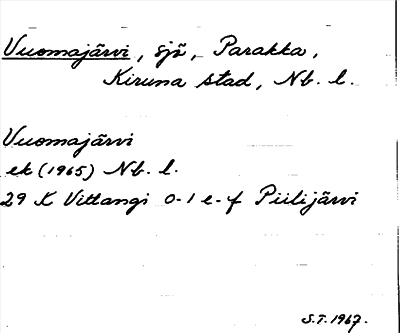 Vuomajärvi, sjö, Parakka,
Kiruna stad, Nb. l.
Vuomajärvi
ek (1965) Nb. l.
29 K Vittangi 0-1 e-f Piilijärvi
S.T. 1967.